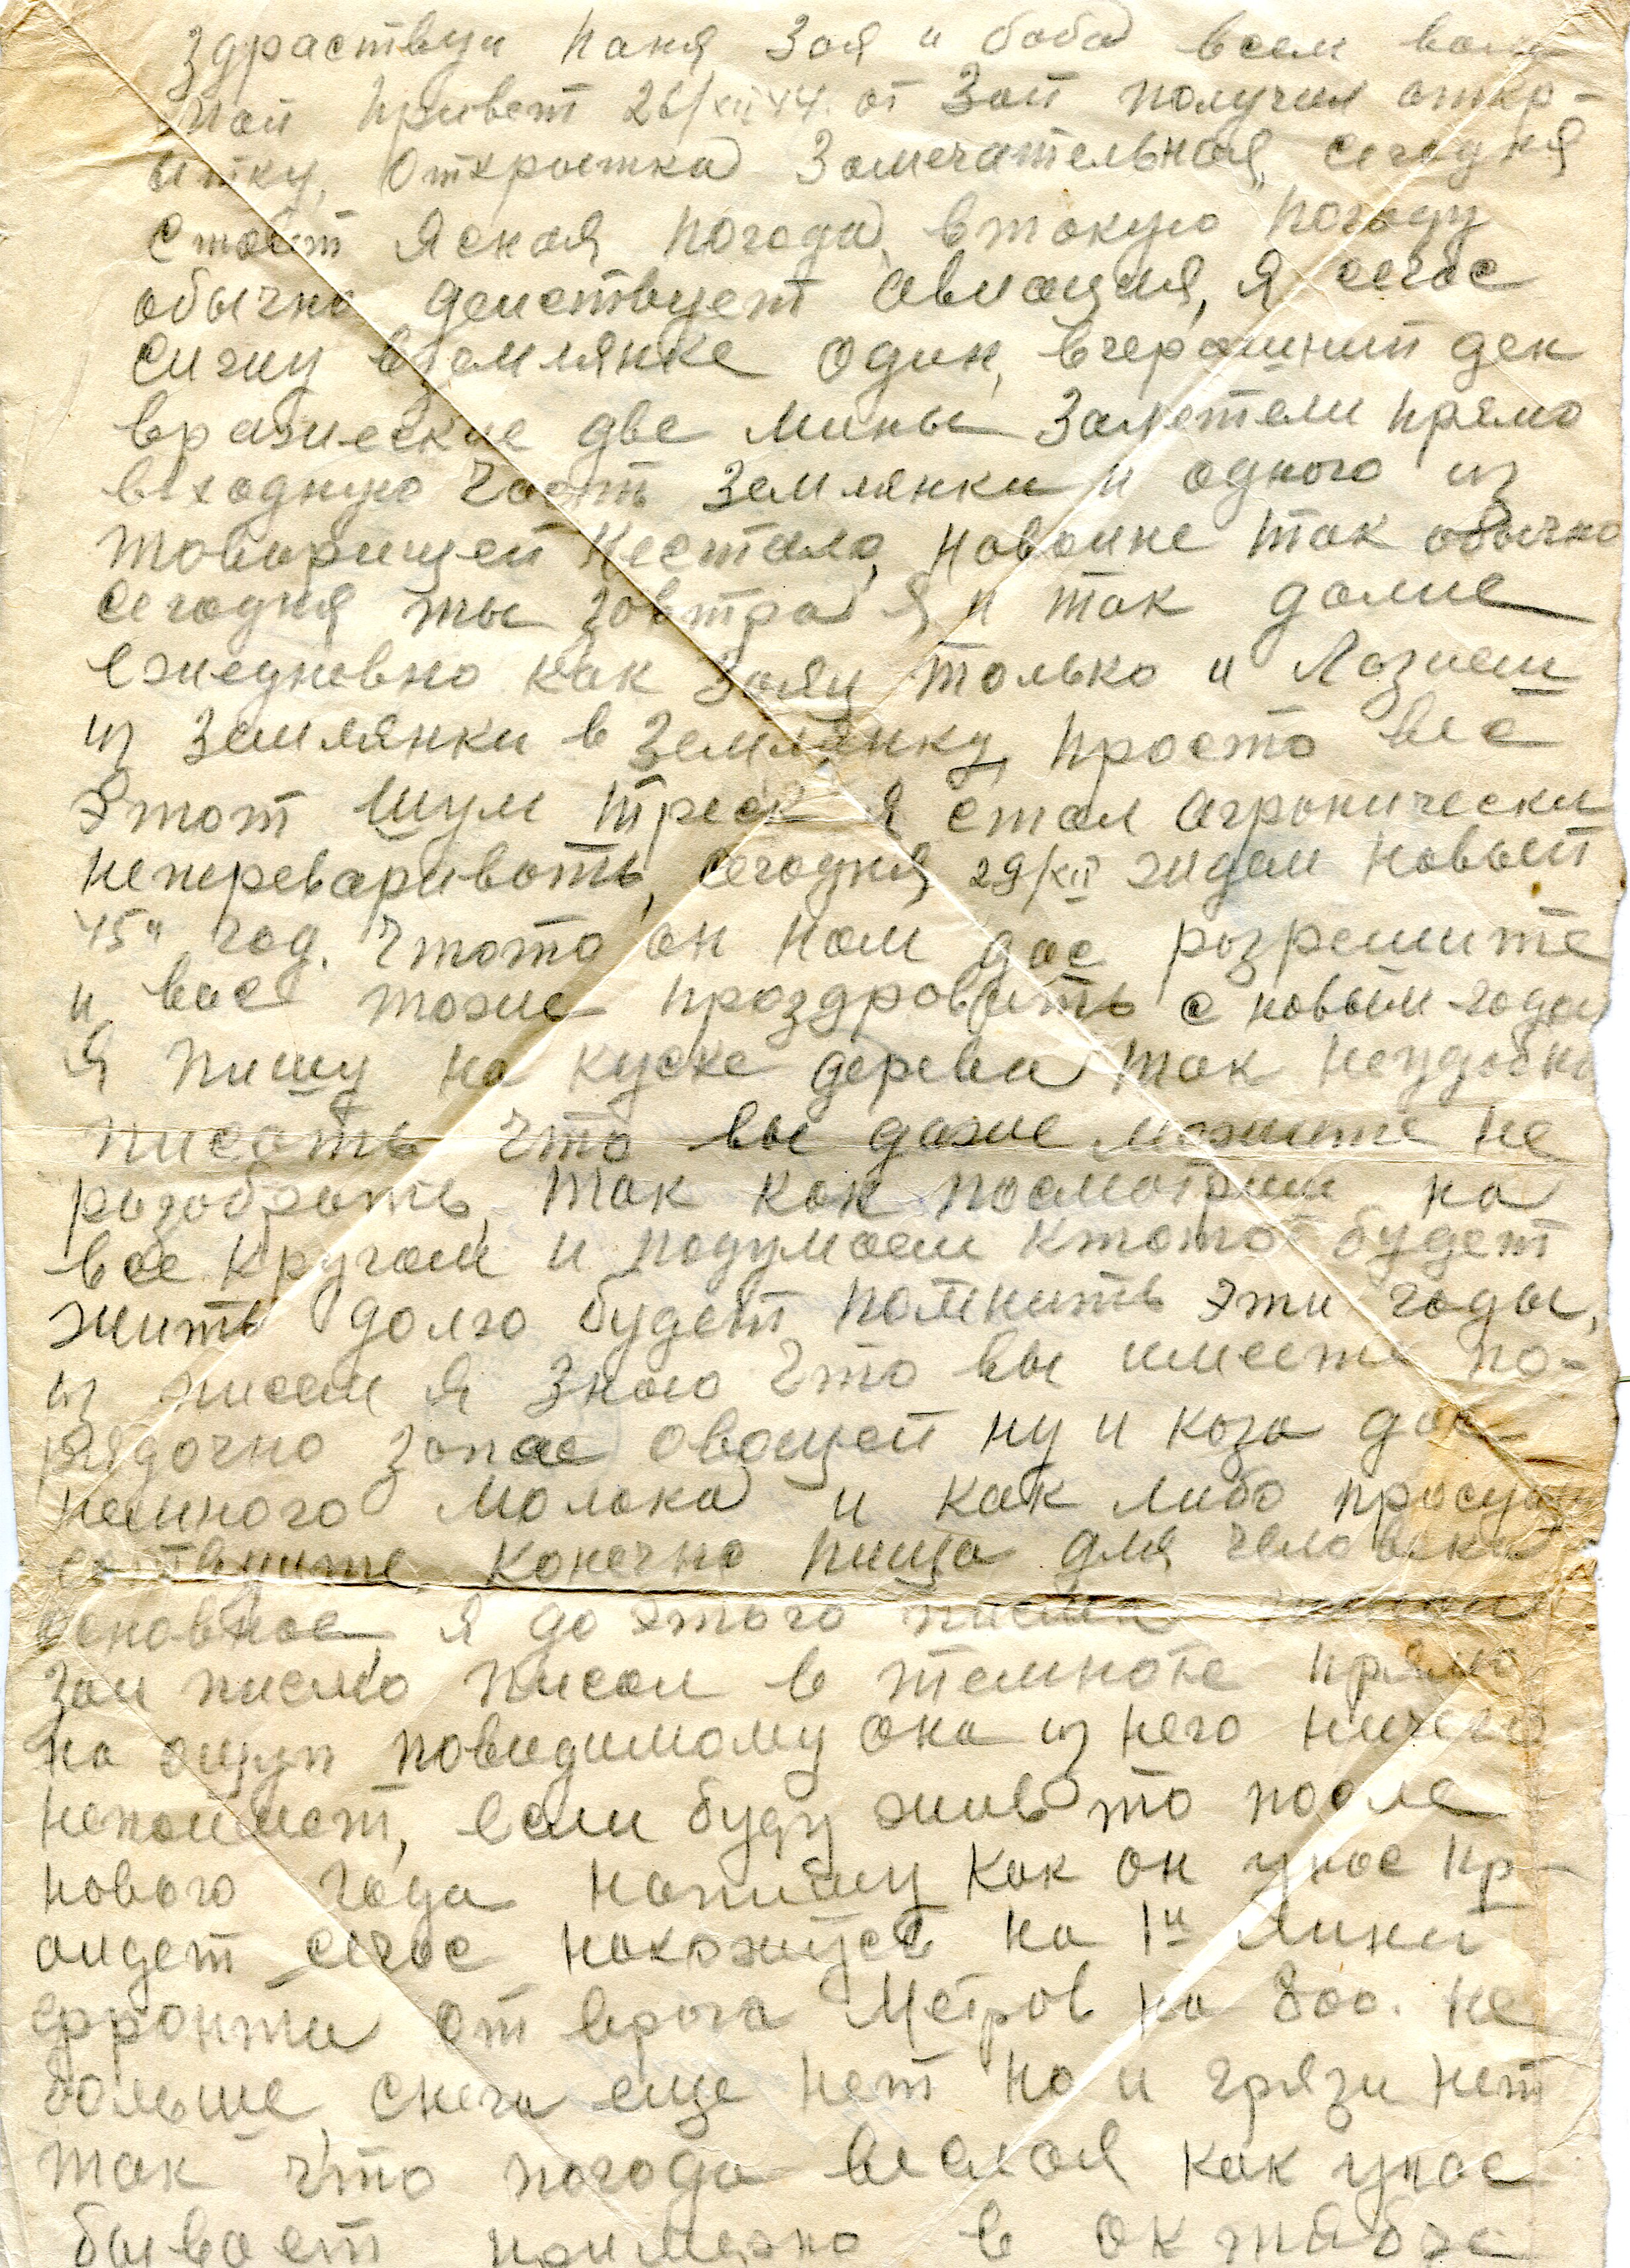 здраствуи Паня Зоя и баба всем вам
мой привет 26/XII 44. от Зои получил откр-
ытку, Открытка замечательная, сегодня
стоит ясная погода, в такую погоду
обычно деиствует авиация, я сечас
сижу вземлянке один, вчерашнии ден
вражиеские две мины залетели прямо
входную часть землянки и одного из
товарищеи нестало, навоине так обычно
сегодня ты завтра я и так далие
ежедневно как только и лазием
из землянки в землянку, просто весь
этот шум треск я стал
непереваривать, сегодня 29/XII ждем новыи
45й год. Чтото он нам дас розрешите
и вас тоже проздровить с новым годом
Я пишу на куске дерева так неудобно
писать что вы даже можите не
розобрать, так как посмотриш на
все кругом и подумаеш ктото будет
жить долго будет помнить эти годы,
из писем я знаю что вы имеете по-
рядочно запас овощеи ну и коза дас
немного молока и как либо просуще-
ствуите конечно пища для человека
основное, я до этого писма
Зои писмо писал в темноте прямо
на ощуп повидимому она из него ничего
непоимет, если буду жив то после
нового года напишу как он унас пр-
оидет сечас нахожусь на 1й линии
фронта от врага метров на 800. не
больше, снега еще нет но и грязи нет
так что погода как унас
бывает примерно в октябре